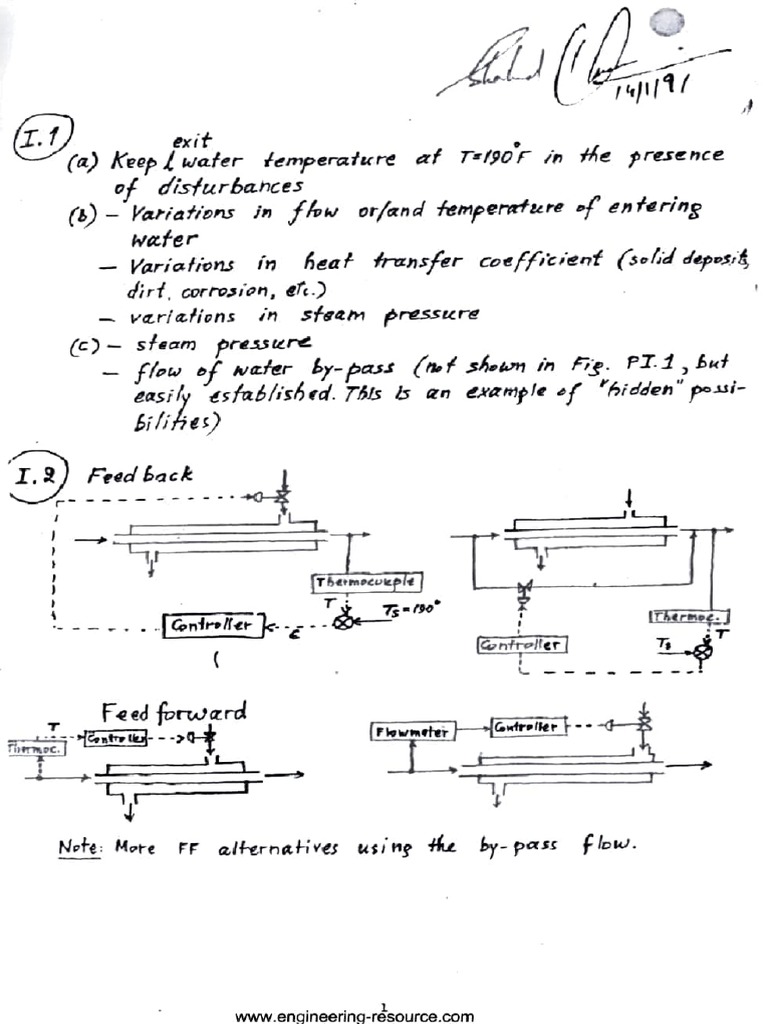 14/1/91
I.1
exit
(a) Keep water temperature at T=190°F in the presence
of disturbances
(b) – Variations in flow or/and temperature of entering
water
– Variations in heat transfer coefficient (solid deposits,
dirt, corrosion, etc.)
– variations in steam pressure
(c) – steam pressure
– flow of water by-pass (not shown in Fig. PI.1, but
easily established. This is an example of "hidden" possi-
bilities)
I.2 Feedback
Thermocouple
T
Ts=190°
Controller
ε
Thermoc.
T
Ts
Controller
Feed forward
T
Thermoc.
Controller
Flowmeter
Controller
Note: More FF alternatives using the by-pass flow.
1
www.engineering-resource.com